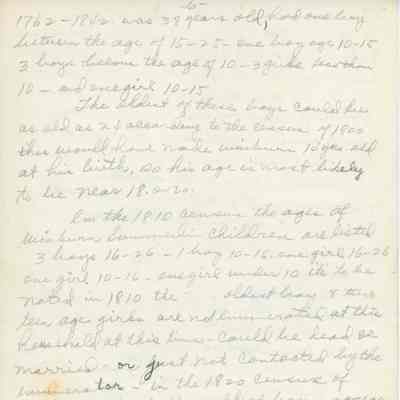 5
1762-1842 was 38 years old, had one boy
between the age of 15-25 - one boy age 10-15
3 boys below the age of 10 - 3 girls less than
10 - and one girl 10-15
The oldest of these boys could be
as old as 24 according to the census of 1800
this would have made Winburn 14 yrs. old
at his birth, so his age is most likely
to be near 18.0-20.
In the 1810 census the ages of
Winburn children are listed
3 boys 16-26 - 1 boy 10-16. one girl 16-26
one girl 10-16 - one girl under 10 its to be
noted in 1810 the oldest boy &
teen age girls are not enumerated at this
household at this time - could be dead or
married - or just not contacted by the
enumerator - in the 1820 census of